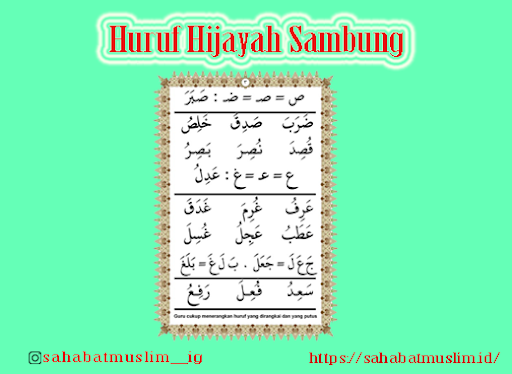 Huruf Hijayah Sambung
ص = صـ = ضـ : صَبَرَ
ضَرَبَ صَدِقَ خَلِصُ
قُصِدَ نُصِرَ بَصِرُ
ع = عـ = غ : عَدِلُ
عَرِفُ غُرِمَ غَدَقَ
عَطَبُ عَجِلُ غُسِلَ
جَ عَ لَ = جَعَلَ . بَ لَ غَ = بَلَغَ
سَعِدُ فُعِلَ رَفِعُ
Guru cukup menerangkan huruf yang dirangkai dan yang putus
sahabatmuslim__ig
https://sahabatmuslim.id/